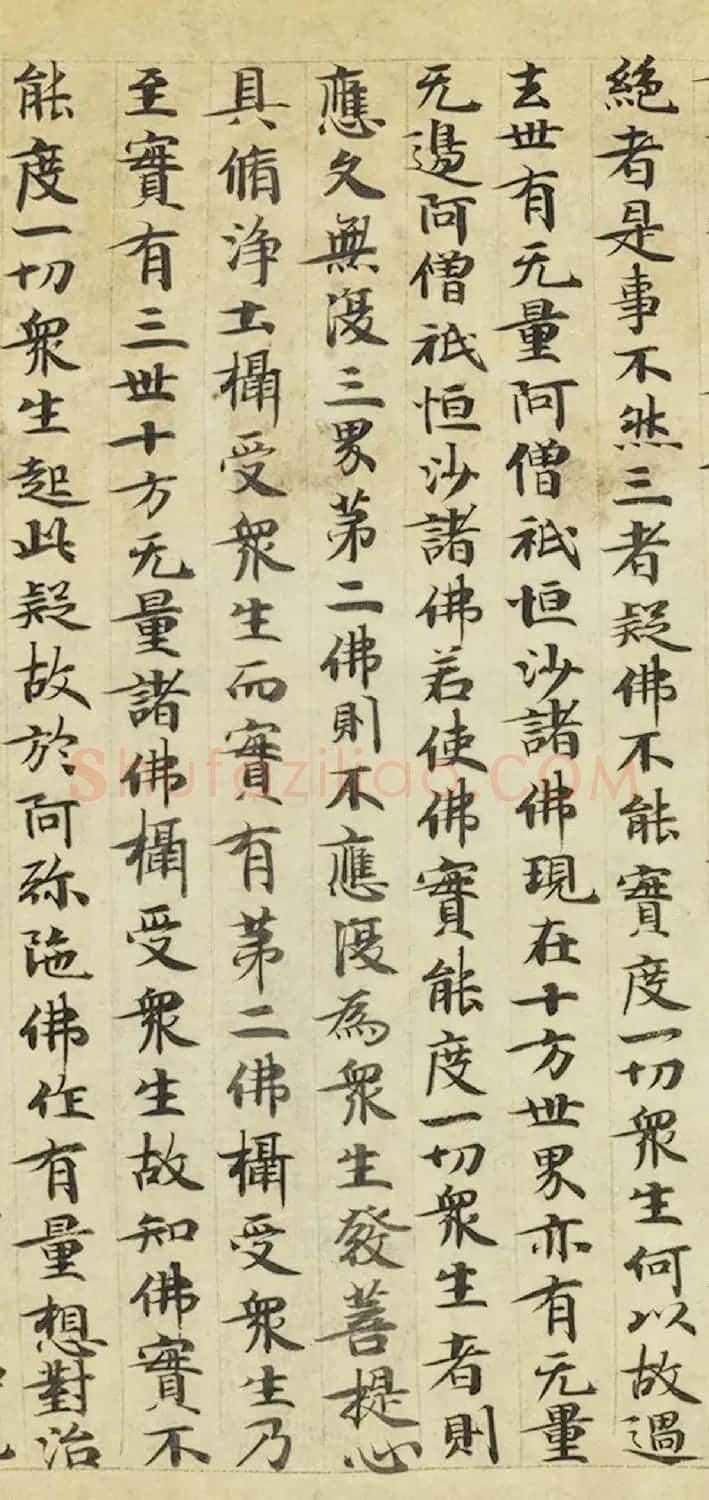 絕者是事不然三者疑佛不能實度一切衆生何以故過
去世有无量阿僧祇恒沙諸佛現在十方世界亦有无量
无邊阿僧祇恒沙諸佛若使佛實能度一切衆生者則
應久無復三界第二佛則不應復為衆生發菩提心
具脩淨土攝受衆生而實有第二佛攝受衆生乃
至實有三世十方无量諸佛攝受衆生故知佛實不
能度一切衆生起此疑故於阿弥陁佛作有量想對治
Shufaziliao.COM